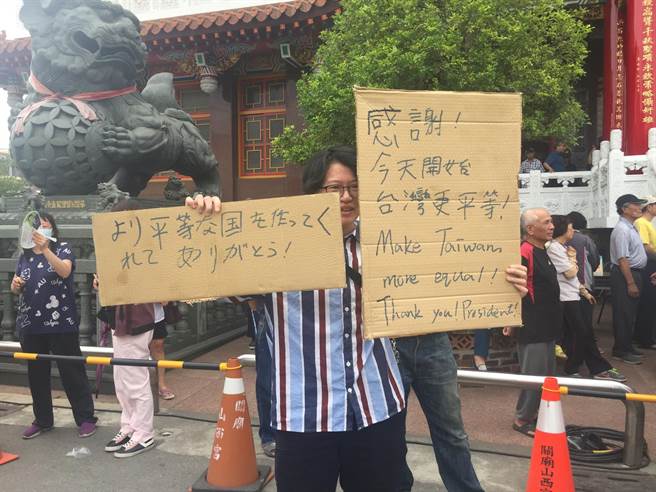 より平等な国を作ってく
れてありがとう!
感謝!
今天開始
台灣更平等!
Make Taiwan
more equal!
Thank you! President!
關廟
山西宮
關廟山西宮